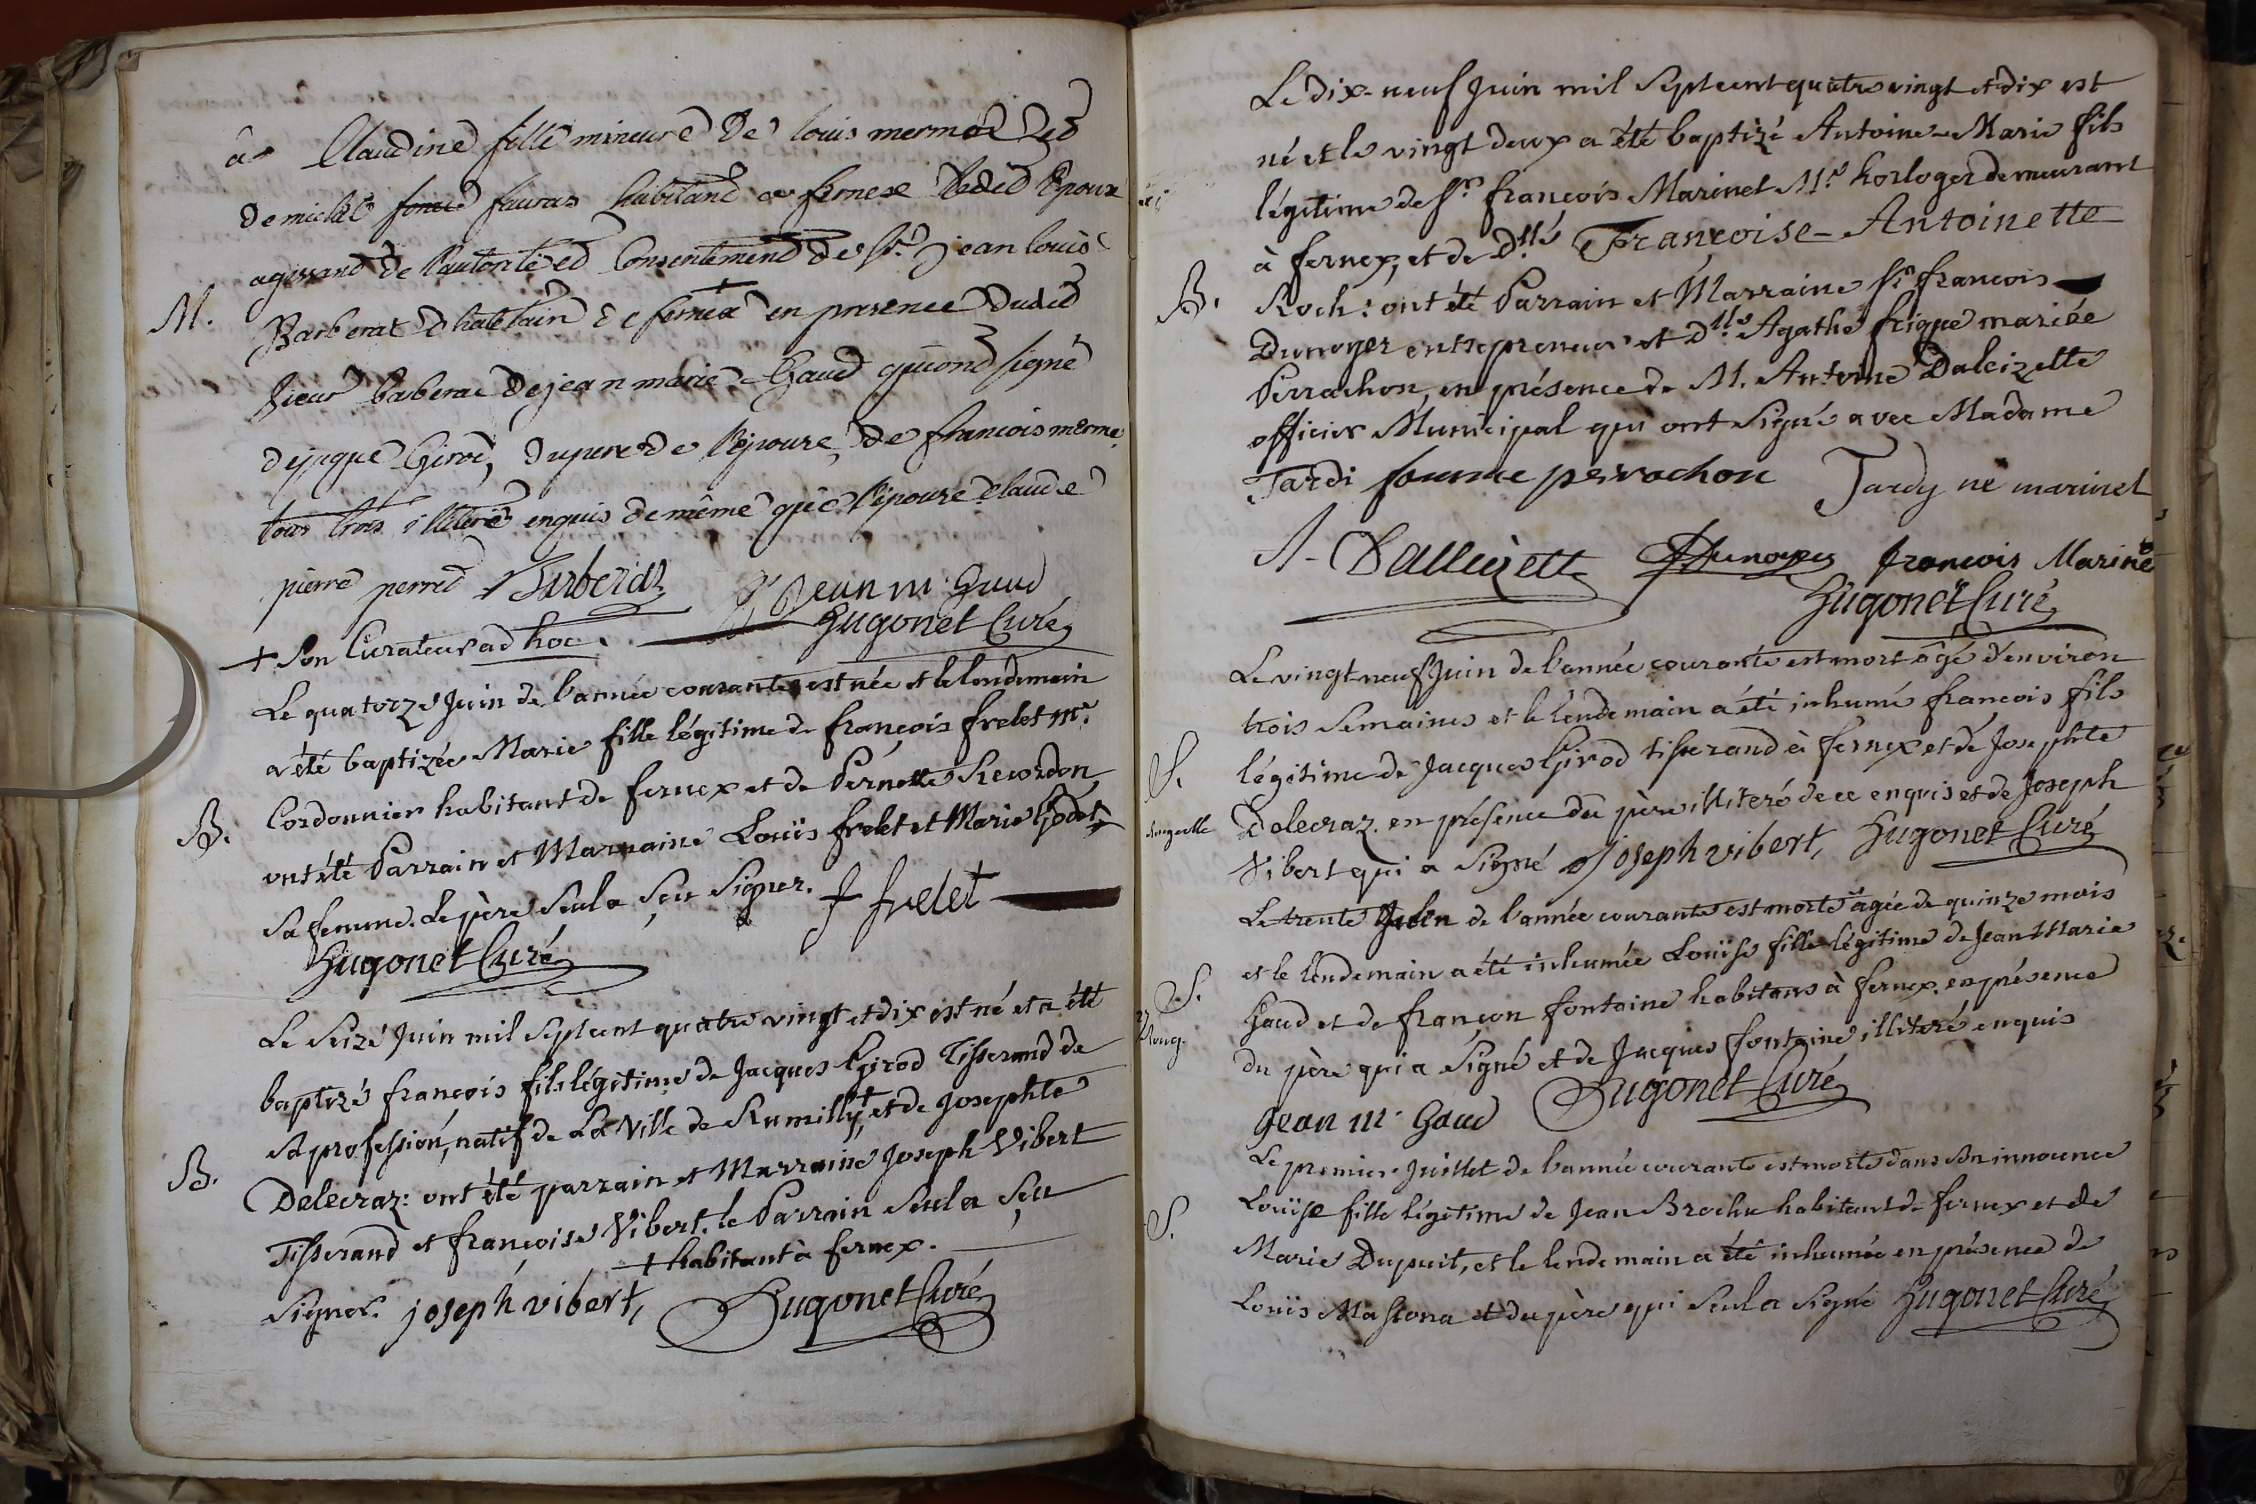 à Claudine fille mineure de louis mermet et
de michele fauras habitant a fernex ladite Epouse
agissant de l'autorité et Consentement de Sr. jean louis
M. Barberat Chatelain de fernex + en presence dudit
sieur barberat de jean marie Gaud qui ont signé
de jaque Girod, du pere de l'Epouse, de francois merme
tous trois illiteré enquis de même que l'épouse claude
pierre perret Barberat Jean m. Gaud
+ Son Curateur ad hoc. Hugonet Curé
Le quatorze Juin de l'année courante est née et le lendemain
a été baptizée Marie fille légitime de françois frelet Me.
B. Cordonnier habitant de fernex et de Pernette Revordon
ont été Parrain et Marraine Louis frelet et Marie Godet
Sa femme. Le père Seul a Sçu Signer. f frelet
Hugonet Curé
Le Seize Juin mil Septcent quatre vingt et dix est né et a été
baptizé françois fils légitime de Jacques Girod Tisserand de
Sa profession, natif de La Ville de Rumilly + et de Josephte
B. Delecraz: ont été parrain et Marraine Joseph Vibert
Tisserand et françoise Vibert. le Parrain Seul a Sçu
+ habitant à fernex.
Signer. joseph vibert, Hugonet Curé
Le dix-neuf Juin mil Septcent quatre vingt et dix est
né et le vingt deux a été baptizé Antoine-Marie fils
légitime de Sr. françois Marinet Me. horloger demeurant
à fernex, et de Dlle. Françoise-Antoinette
B. Roch: ont été Parrain et Marraine Sr. francois
Dunoyer entrepreneur et Dlle. Agathe frique mariée
Perrachon, en présence de M. Antoine Daleizette
officier Municipal qui ont Signé avec Madame
Tardi femme perrachon Tardy né marinet
A-Dalleizette Dunoyer francois Marinet
Hugonet Curé
Le vingt neuf Juin de l'année courante est mort âgé d'environ
trois Semaines et le lendemain a été inhumé francois fils
S. légitime de Jacques Girod tisserand à fernex et de Josephte
Delecraz. en présence du père illiteré de ce enquis et de Joseph
Vibert qui a signé Joseph vibert, Hugonet Curé
Le trente Juin de l'année courante est morte âgée de quinze mois
et le lendemain a été inhumée Louise fille légitime de Jean Marie
S. Gaud et de françon fontaine habitans à fernex, en présence
du père qui a Signé et de Jacques fontaine illiteré enquis
Jean m. Gaud Hugonet Curé
Le premier Juillet de l'année courante est morte dans Son innocence
S. Louise fille légitime de Jean Brochu habitant de fernex et de
Marie Dupuit, et le lendemain a été inhumée en présence de
Louis Mastona et du père qui Seul a Signé Hugonet Curé